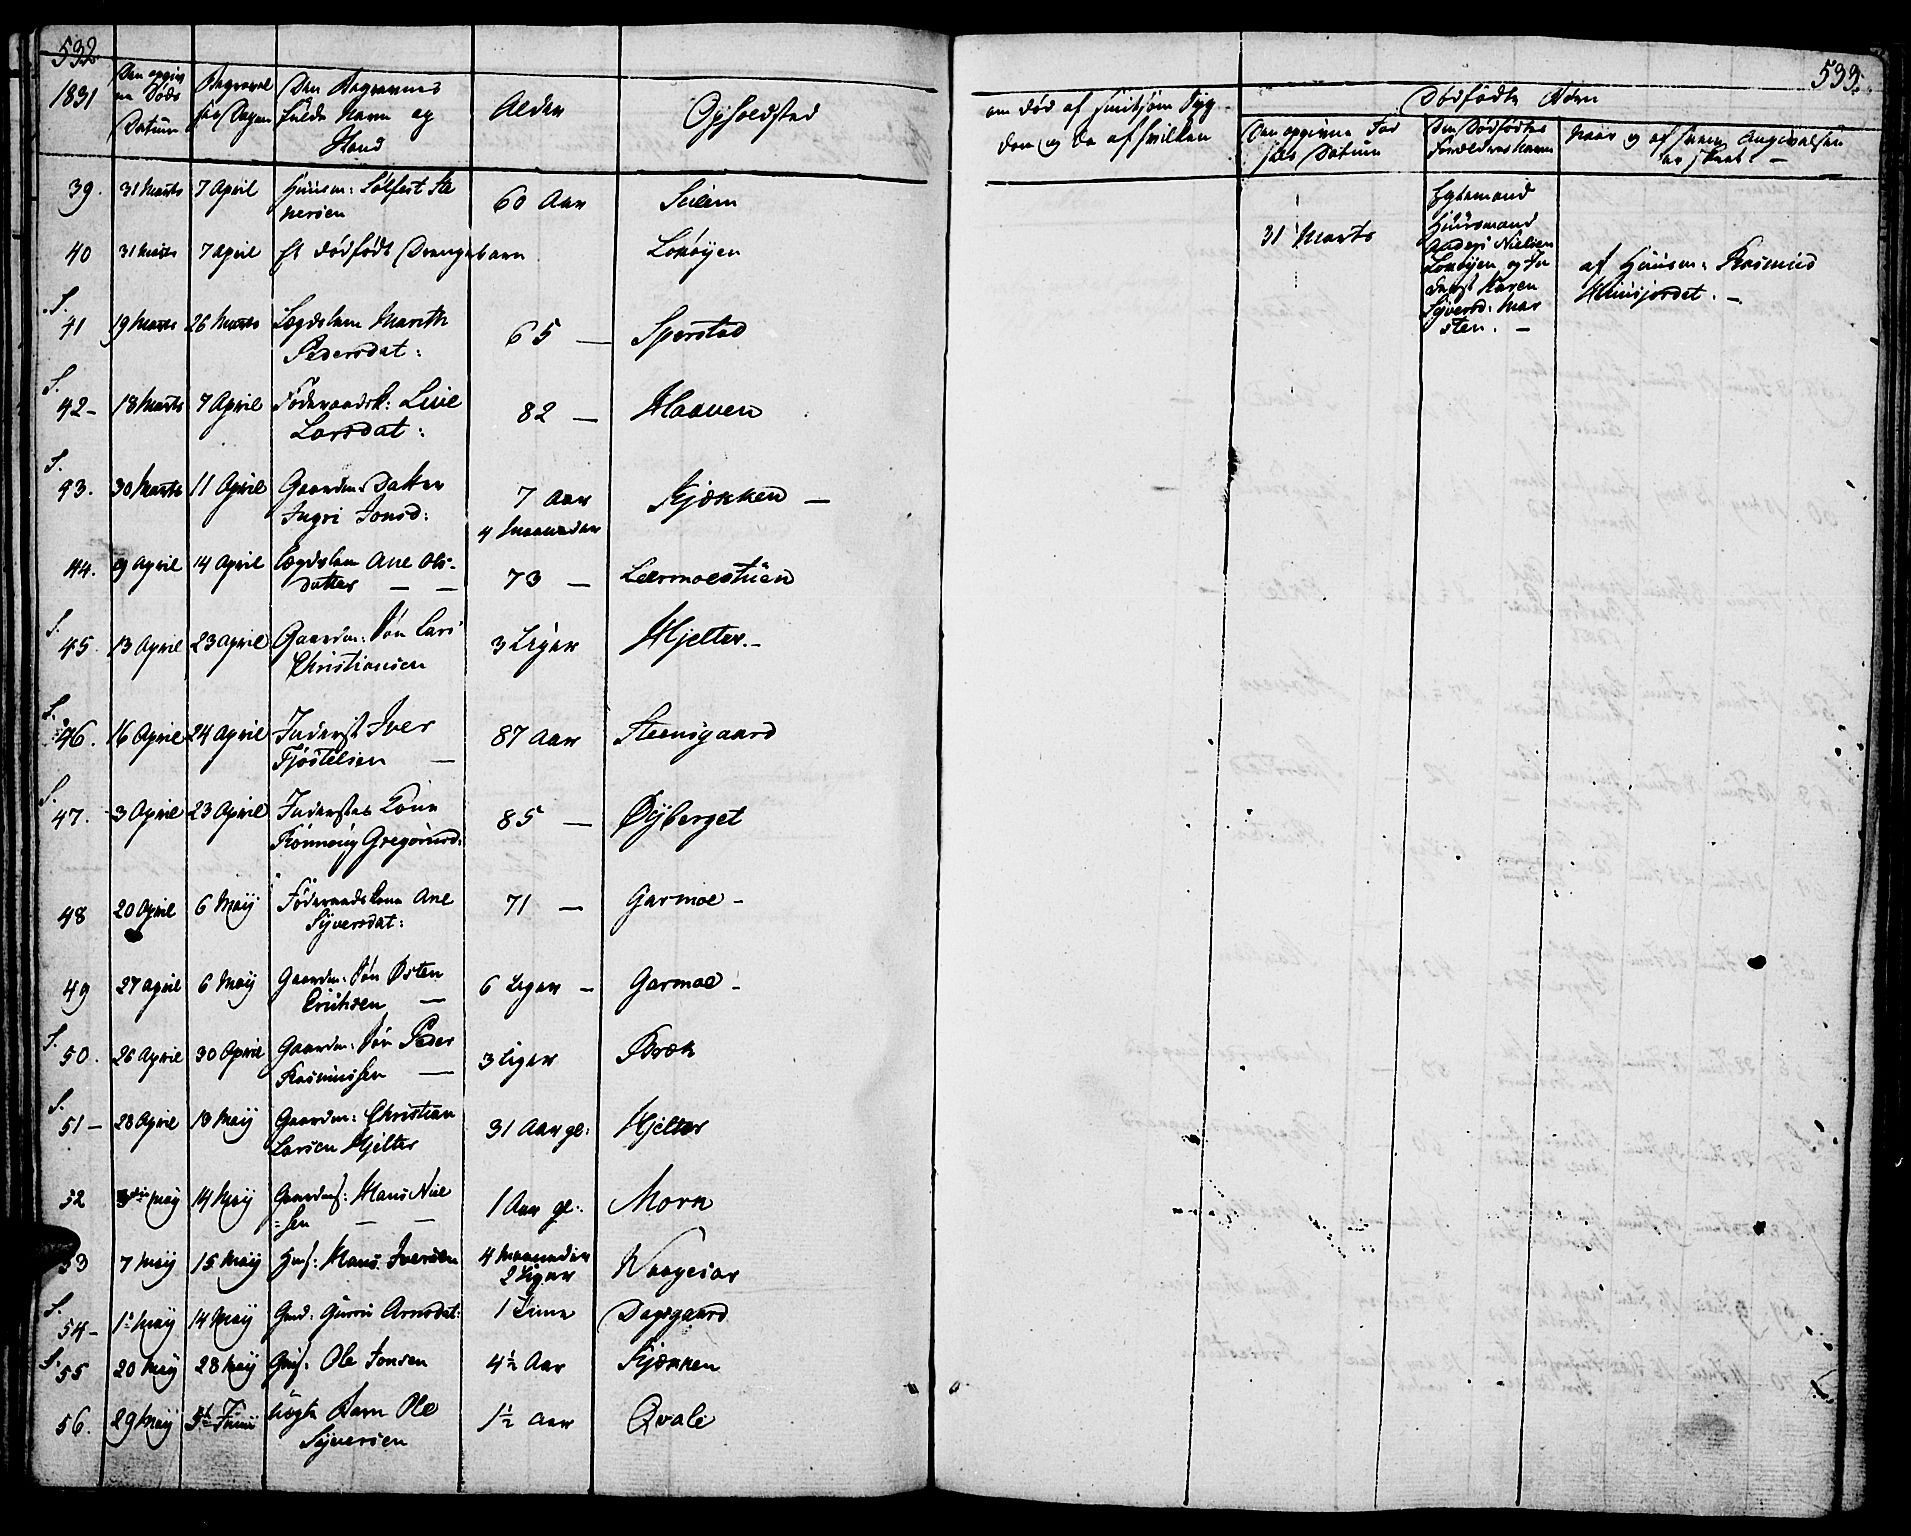 532
1831
Den opgiv
ne Døds
Datum
Begravel
ses Dagen
Den Begravnes
fulde Navn og
Stand
Alder
Opholdsted
39. 31 Marts 7 April Huusm: Sølfest Ste
nersen 60 Aar
40 31 Marts 7 April et dødfødt Drengebarn Lokøyen
S.
41 19 Marts 26 Marts Lægdslem Marith
Pedersdat: 65 — Sperstad
S.
42 - 18 Marts 7 April Føderaadsk: Live
Larsdat: 82 — Haaven
S.
43. 30 Marts 11 April Gaardm: Datter
Ingri Jonsd: 7 Aar
4 Maaneder Kjækken —
44. 9 April 14 April Lægdslem Ane Ols-
datter — — 73 — Leermoestuen
S.
45. 13 April 23 April Gaardm: Søn Lars
Christiansen 3 Uger Hjelter. -
S.
46. 16 April 24 April Inderst Iver
Fjøstelsen — 87 Aar Steensgaard
S.
47. 3 April 23 April Inderstes Kone
Rønnoug Gregoriusd: 85 — Øyberget
48 20 April 6 Maij Føderaadskone Ane
Syversdat: 71 — Garmoe -
49 27 April 6 Maij Gaardm: Søn Østen
Erichsen — 6 Uger - Garmoe -
S.
50. 26 April 30 April Gaardm: Søn Peder
Rasmussen — 3 Uger Bræk
S.
51 - 28 April 13 Maij Gaardm: Christian
Larsen Hjelter 31 Aar gl: Hjelter
52 Maij 14 Maij Gaardms: Hans Niel
=sen — — 1 Aar gl: Mork
53 7 Maij 15 Maij Hms: Hans Iversen 4 Maaneder
2 Uger Vaagesar
S.
54 - 1 Maij 14 Maij Gmd: Gurru Arnsdat: 1 Time Dagsgaard
S.
55 20 Maij 28 Maij Gms: Ole Jonsen 4½ Aar Kjækken
56. 29 Maij Junii uægte Barn Ole
Syversen 1½ Aar Qvale
533.
om død af smitsom Syg
dom og da af hvilken
Dødfødte Børn
Den opgivne Fød
sels Datum
Den Dødfødtes
Forældres Navn
naar og af hvem Angivelsen
er skeet —
31 Marts
Egtemand
Huusmand
Anders Nielsen
Lokøyen og In
derst Karen
Syversd: Mar
sten. —
af Huusm: Rasmus
Huusjordet. —